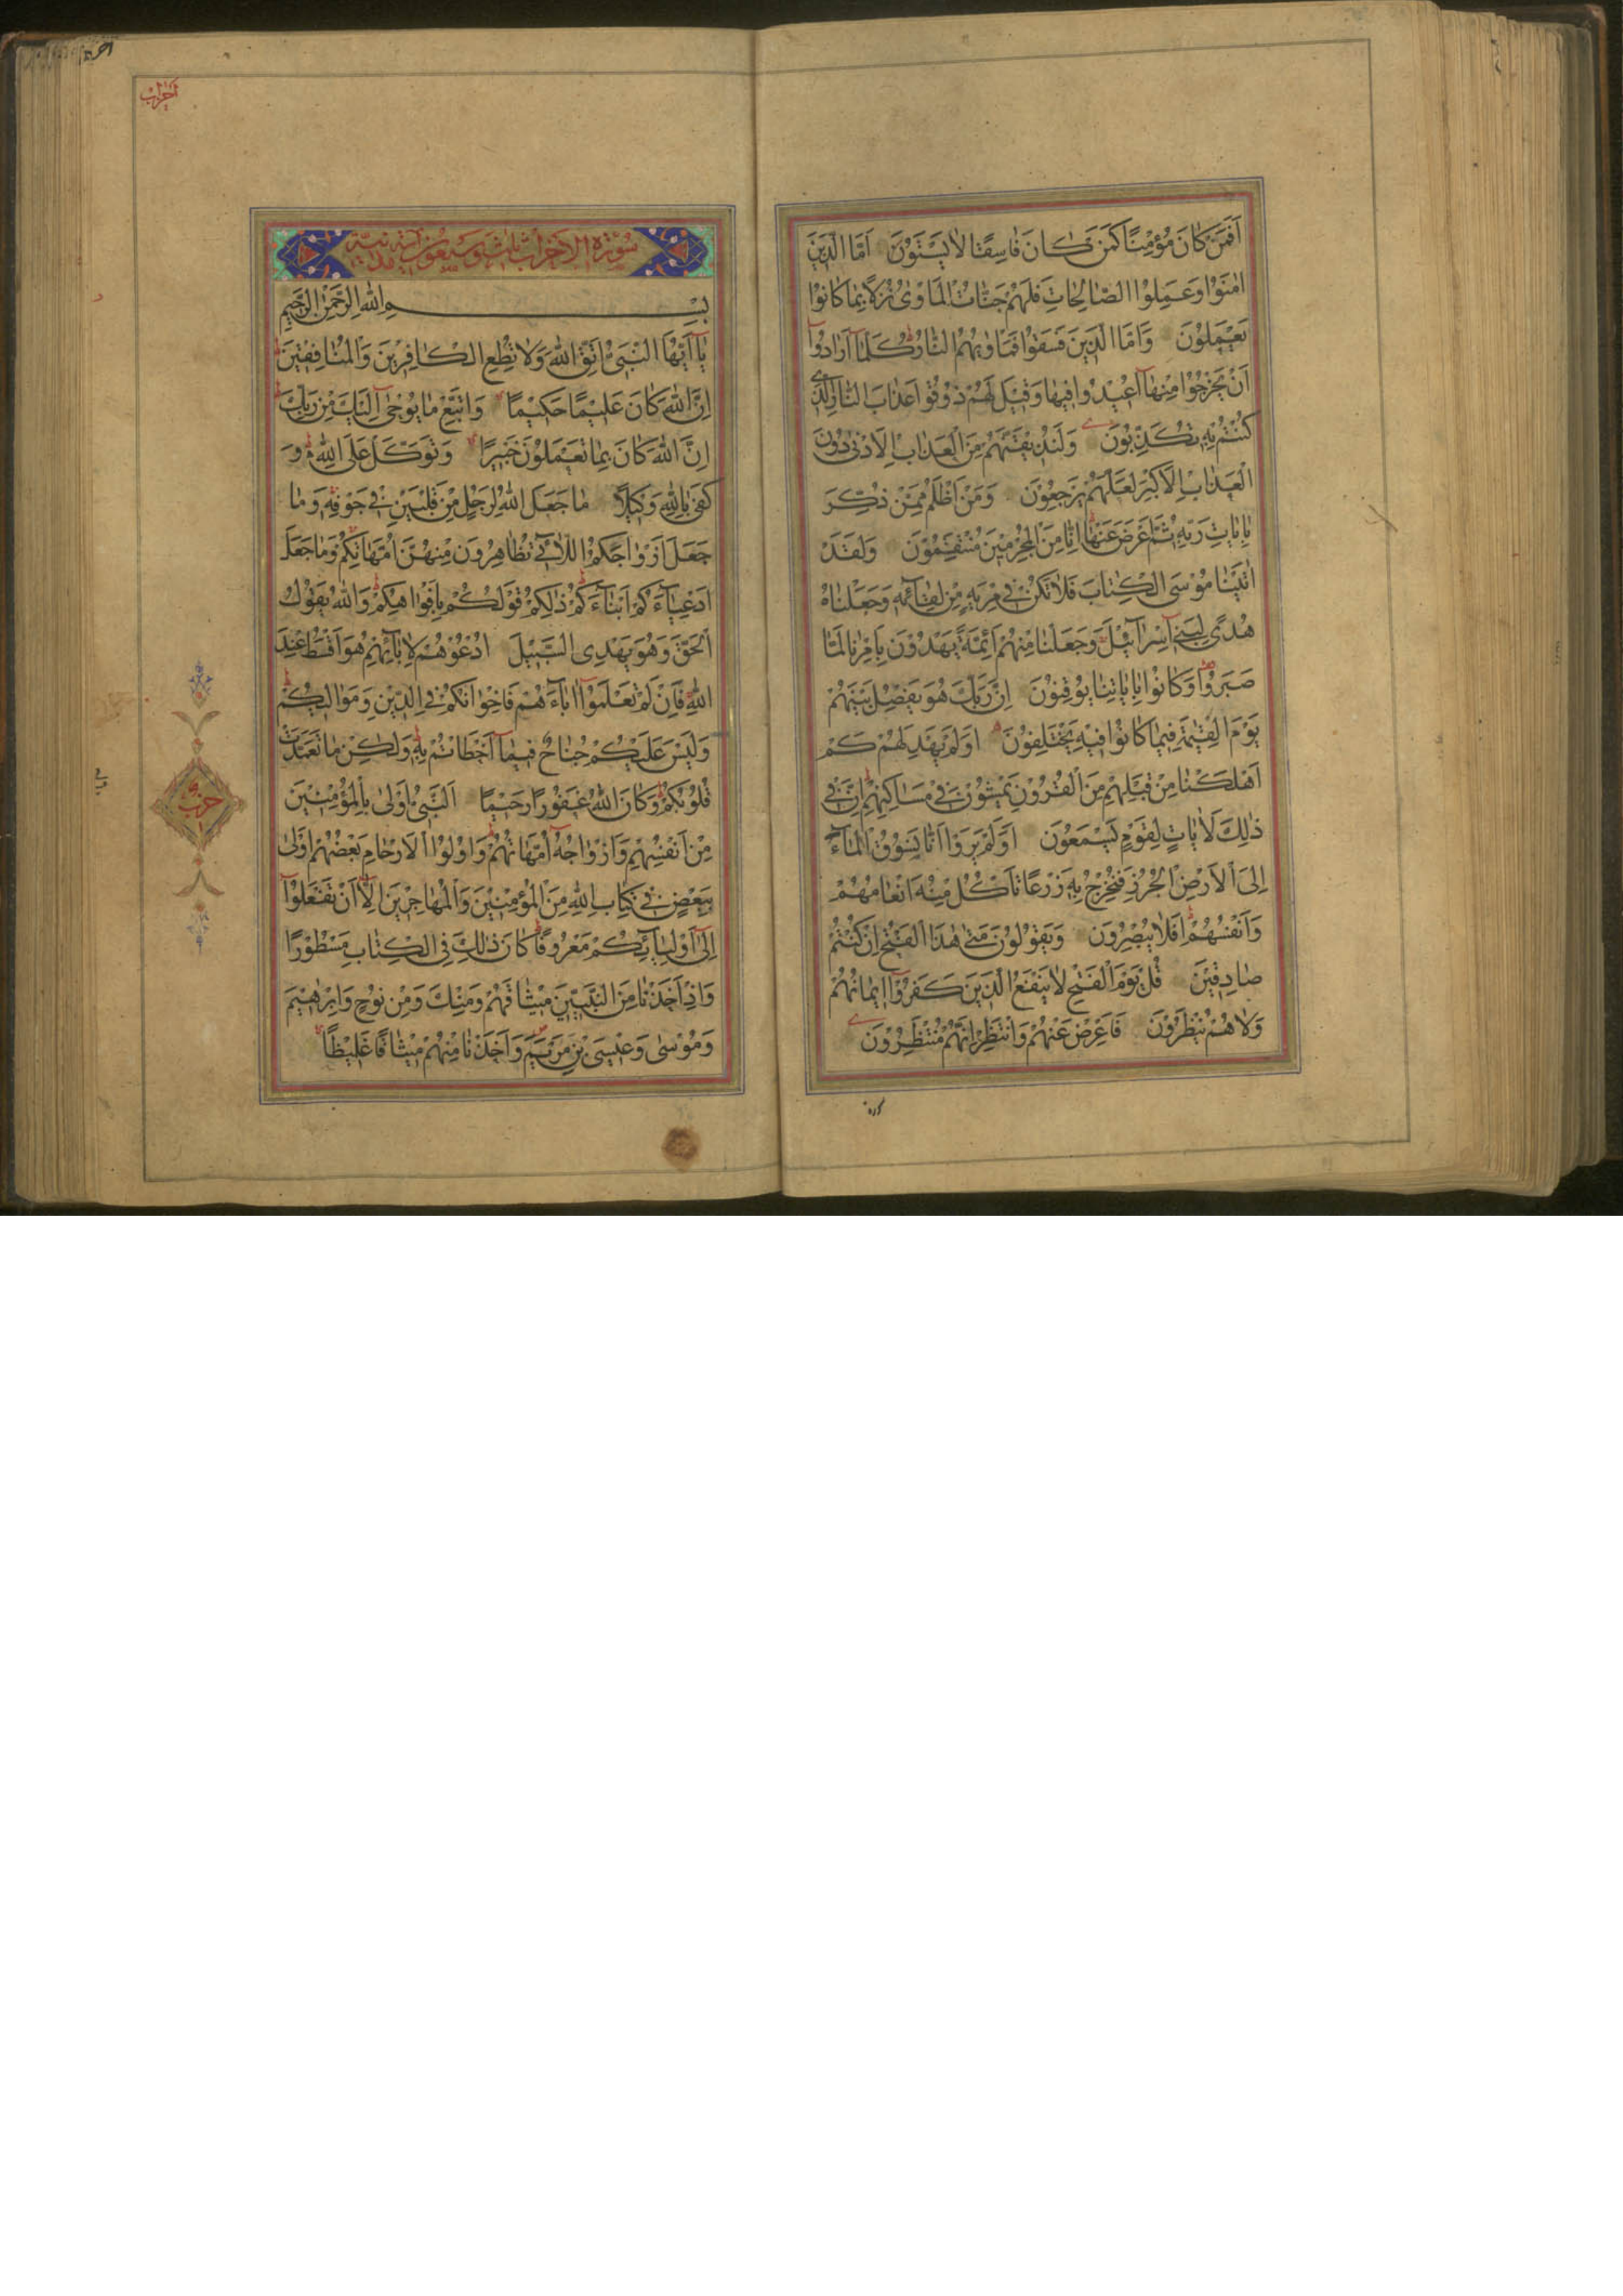 اَفَمَنْ كَانَ مُؤْمِنًا كَمَنْ كَانَ فَاسِقًا لَا يَسْتَوُونَ اَمَّا الَّذِينَ
اٰمَنُوا وَعَمِلُوا الصَّالِحَاتِ فَلَهُمْ جَنَّاتُ الْمَأْوٰى نُزُلًا بِمَا كَانُوا
يَعْمَلُونَ وَاَمَّا الَّذِينَ فَسَقُوا فَمَأْوٰيهُمُ النَّارُ كُلَّمَا اَرَادُوا
اَنْ يَخْرُجُوا مِنْهَا اُعِيدُوا فِيهَا وَقِيلَ لَهُمْ ذُوقُوا عَذَابَ النَّارِ الَّذِي
كُنْتُمْ بِهِ تُكَذِّبُونَ وَلَنُذِيقَنَّهُمْ مِنَ الْعَذَابِ الْاَدْنٰى دُونَ
الْعَذَابِ الْاَكْبَرِ لَعَلَّهُمْ يَرْجِعُونَ وَمَنْ اَظْلَمُ مِمَّنْ ذُكِّرَ
بِاٰيَاتِ رَبِّهِ ثُمَّ اَعْرَضَ عَنْهَا اِنَّا مِنَ الْمُجْرِمِينَ مُنْتَقِمُونَ وَلَقَدْ
اٰتَيْنَا مُوسَى الْكِتَابَ فَلَا تَكُنْ فِي مِرْيَةٍ مِنْ لِقَائِهِ وَجَعَلْنَاهُ
هُدًى لِبَنِي اِسْرَائِيلَ وَجَعَلْنَا مِنْهُمْ اَئِمَّةً يَهْدُونَ بِاَمْرِنَا لَمَّا
صَبَرُوا وَكَانُوا بِاٰيَاتِنَا يُوقِنُونَ اِنَّ رَبَّكَ هُوَ يَفْصِلُ بَيْنَهُمْ
يَوْمَ الْقِيٰمَةِ فِيمَا كَانُوا فِيهِ يَخْتَلِفُونَ اَوَلَمْ يَهْدِ لَهُمْ كَمْ
اَهْلَكْنَا مِنْ قَبْلِهِمْ مِنَ الْقُرُونِ يَمْشُونَ فِي مَسَاكِنِهِمْ اِنَّ فِي
ذٰلِكَ لَاٰيَاتٍ لِقَوْمٍ يَسْمَعُونَ اَوَلَمْ يَرَوْا اَنَّا نَسُوقُ الْمَاءَ
اِلَى الْاَرْضِ الْجُرُزِ فَنُخْرِجُ بِهِ زَرْعًا تَأْكُلُ مِنْهُ اَنْعَامُهُمْ
وَاَنْفُسُهُمْ اَفَلَا يُبْصِرُونَ وَيَقُولُونَ مَتٰى هٰذَا الْفَتْحُ اِنْ كُنْتُمْ
صَادِقِينَ قُلْ يَوْمَ الْفَتْحِ لَا يَنْفَعُ الَّذِينَ كَفَرُوا اِيمَانُهُمْ
وَلَا هُمْ يُنْظَرُونَ فَاَعْرِضْ عَنْهُمْ وَانْتَظِرْ اِنَّهُمْ مُنْتَظِرُونَ
سورة
احزاب
سُورَةُ الْاَحْزَابِ ثَلٰثٌ وَسَبْعُونَ اٰيَةً مَدَنِيَّةٌ
بِسْمِ اللهِ الرَّحْمٰنِ الرَّحِيمِ
يَا اَيُّهَا النَّبِيُّ اتَّقِ اللهَ وَلَا تُطِعِ الْكَافِرِينَ وَالْمُنَافِقِينَ
اِنَّ اللهَ كَانَ عَلِيمًا حَكِيمًا وَاتَّبِعْ مَا يُوحٰى اِلَيْكَ مِنْ رَبِّكَ
اِنَّ اللهَ كَانَ بِمَا تَعْمَلُونَ خَبِيرًا وَتَوَكَّلْ عَلَى اللهِ وَ
كَفٰى بِاللهِ وَكِيلًا مَا جَعَلَ اللهُ لِرَجُلٍ مِنْ قَلْبَيْنِ فِي جَوْفِهِ وَمَا
جَعَلَ اَزْوَاجَكُمُ اللَّائِي تُظَاهِرُونَ مِنْهُنَّ اُمَّهَاتِكُمْ وَمَا جَعَلَ
اَدْعِيَاءَكُمْ اَبْنَاءَكُمْ ذٰلِكُمْ قَوْلُكُمْ بِاَفْوَاهِكُمْ وَاللهُ يَقُولُ
الْحَقَّ وَهُوَ يَهْدِي السَّبِيلَ اُدْعُوهُمْ لِاٰبَائِهِمْ هُوَ اَقْسَطُ عِنْدَ
اللهِ فَاِنْ لَمْ تَعْلَمُوا اٰبَاءَهُمْ فَاِخْوَانُكُمْ فِي الدِّينِ وَمَوَالِيكُمْ
وَلَيْسَ عَلَيْكُمْ جُنَاحٌ فِيمَا اَخْطَأْتُمْ بِهِ وَلٰكِنْ مَا تَعَمَّدَتْ
قُلُوبُكُمْ وَكَانَ اللهُ غَفُورًا رَحِيمًا اَلنَّبِيُّ اَوْلٰى بِالْمُؤْمِنِينَ
مِنْ اَنْفُسِهِمْ وَاَزْوَاجُهُ اُمَّهَاتُهُمْ وَاُولُوا الْاَرْحَامِ بَعْضُهُمْ اَوْلٰى
بِبَعْضٍ فِي كِتَابِ اللهِ مِنَ الْمُؤْمِنِينَ وَالْمُهَاجِرِينَ اِلَّا اَنْ تَفْعَلُوا
اِلٰى اَوْلِيَائِكُمْ مَعْرُوفًا كَانَ ذٰلِكَ فِي الْكِتَابِ مَسْطُورًا
وَاِذْ اَخَذْنَا مِنَ النَّبِيِّينَ مِيثَاقَهُمْ وَمِنْكَ وَمِنْ نُوحٍ وَاِبْرٰهِيمَ
وَمُوسٰى وَعِيسَى بْنِ مَرْيَمَ وَاَخَذْنَا مِنْهُمْ مِيثَاقًا غَلِيظًا
حزب